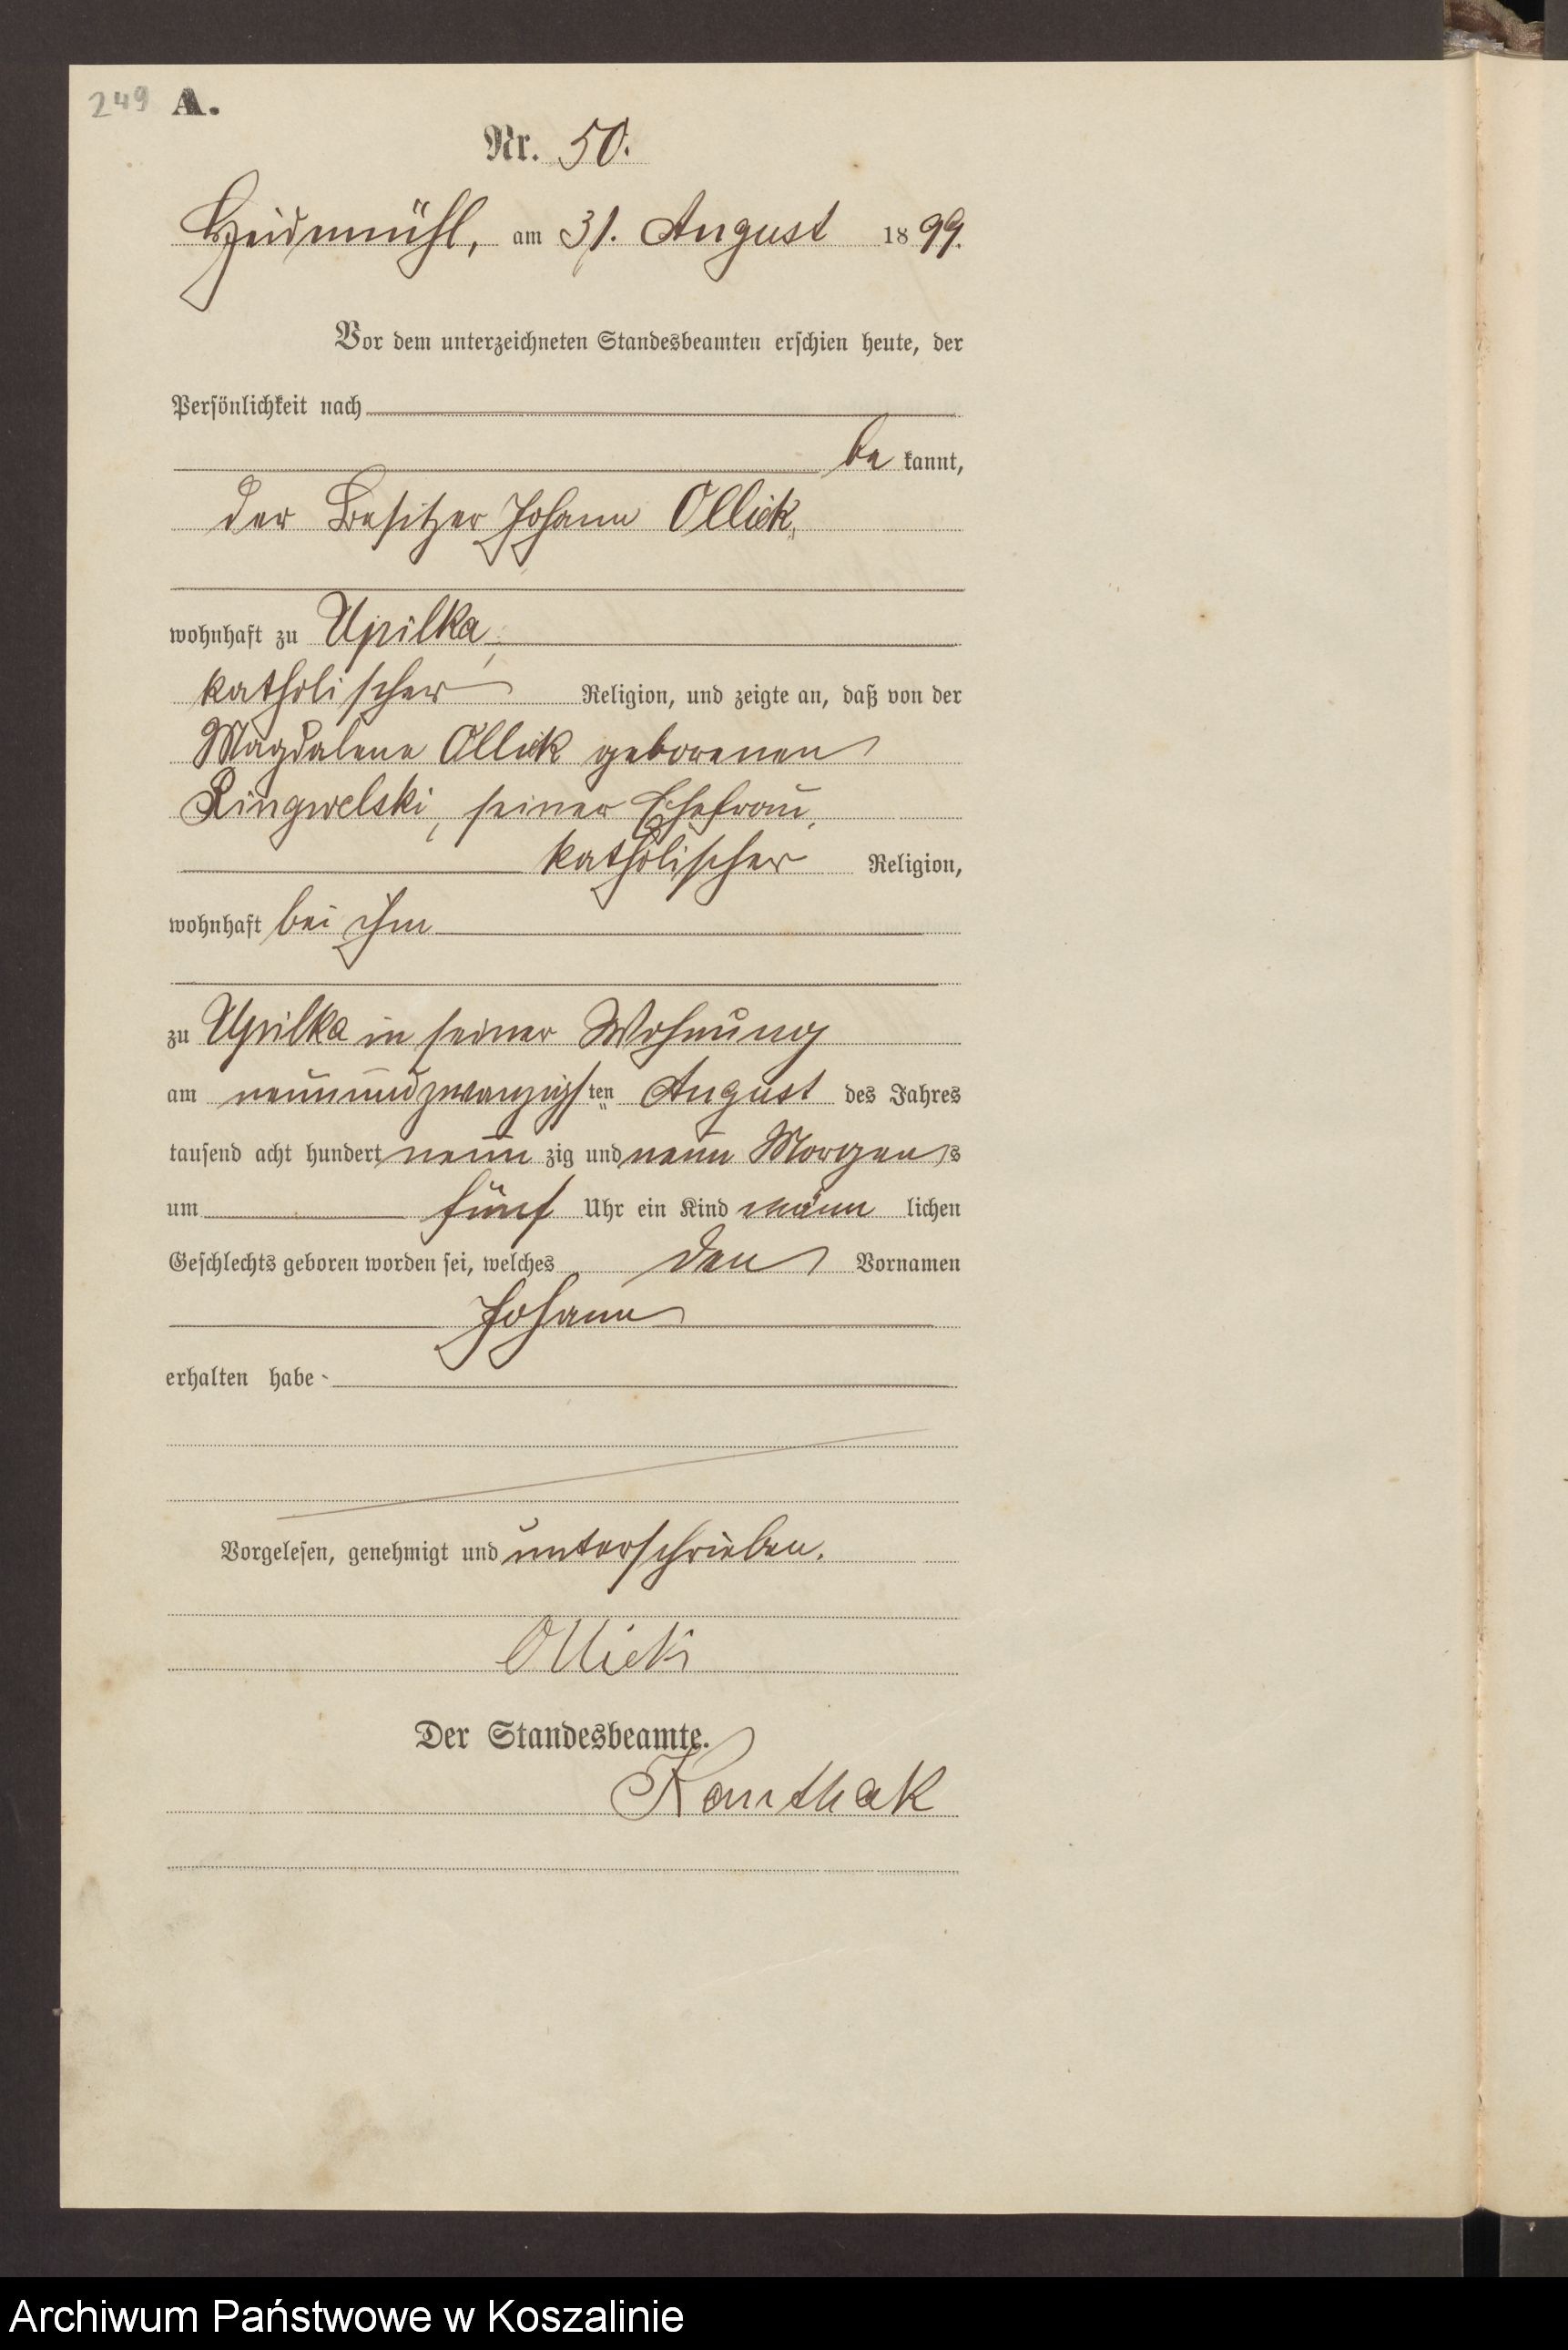 249 A.
Nr. 50.
Heidemühl, am 31. August 1899.
Vor dem unterzeichneten Standesbeamten erschien heute, der
Persönlichkeit nach
be kannt,
der Besitzer Johann Ollick,
wohnhaft zu Upilka,
katholischer Religion, und zeigte an, daß von der
Magdalena Ollick geborenen
Ringwelski, seiner Ehefrau,
katholischer Religion,
wohnhaft bei ihm
zu Upilka in seiner Wohnung
am neunundzwanzigsten August des Jahres
tausend acht hundert neun zig und neun Morgens
um fünf Uhr ein Kind männ lichen
Geschlechts geboren worden sei, welches den Vornamen
Johann
erhalten habe
Vorgelesen, genehmigt und unterschrieben.
Ollick
Der Standesbeamte.
Kanthak
Archiwum Państwowe w Koszalinie